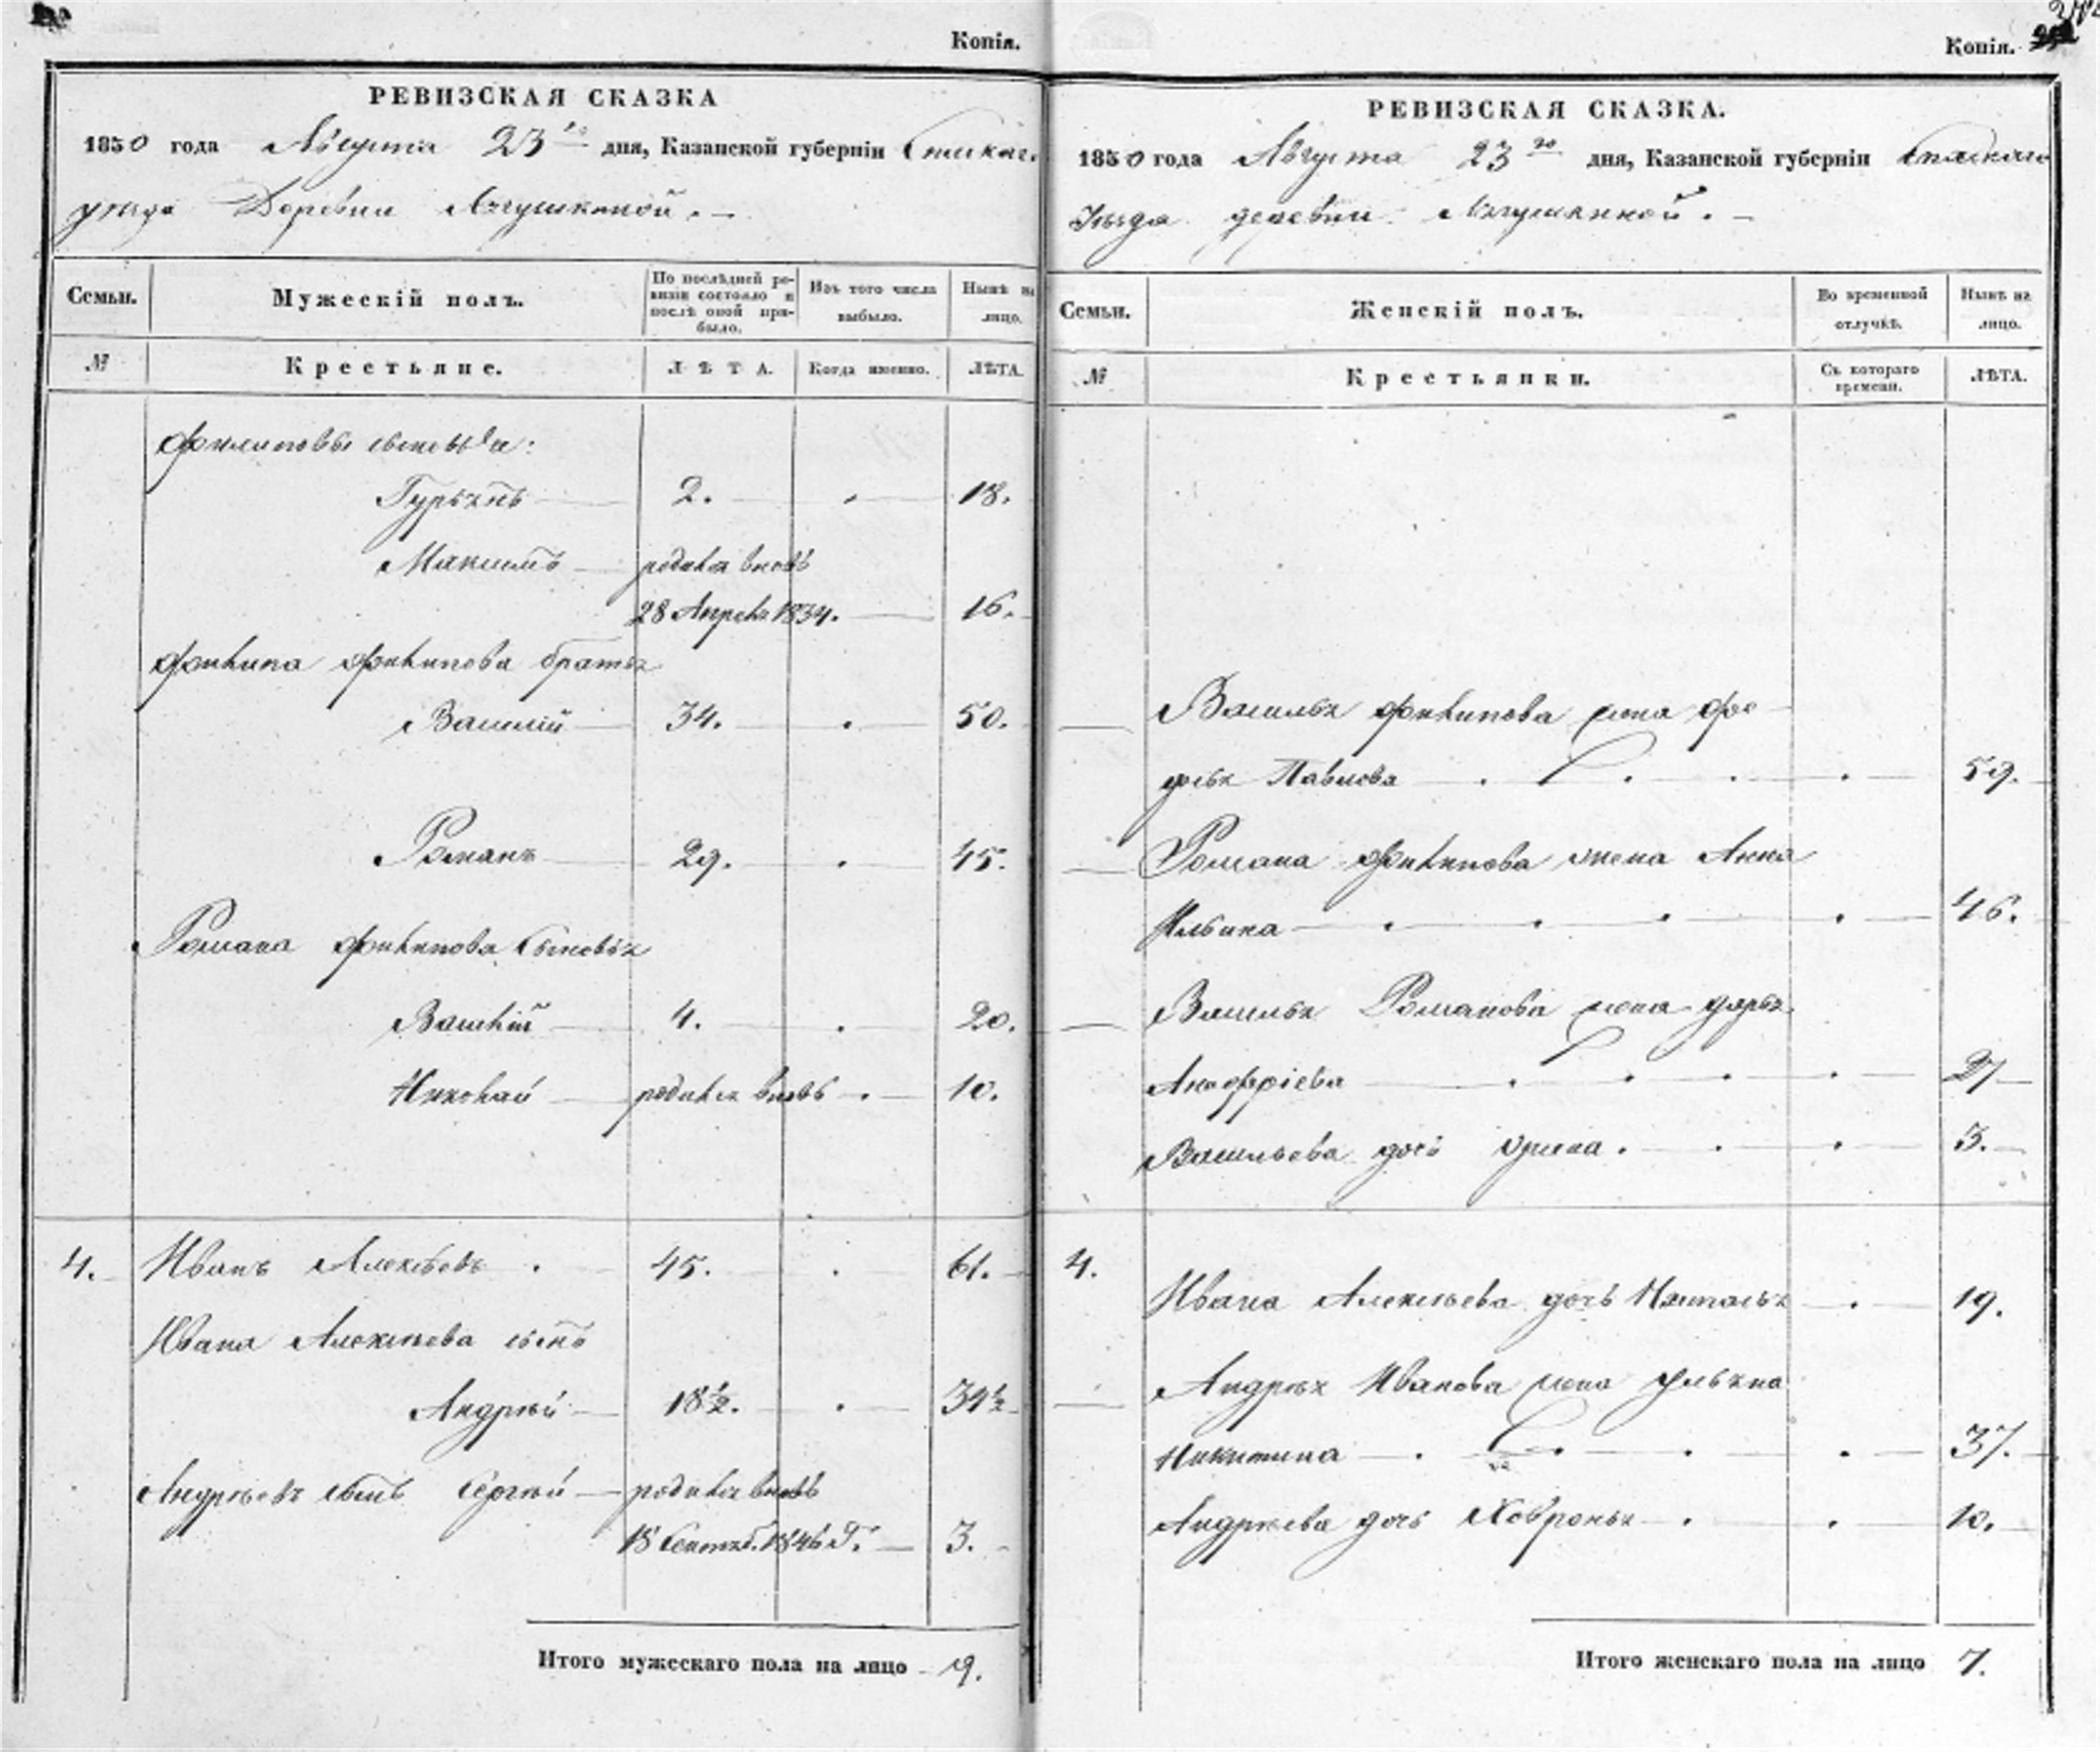 Копія.
РЕВИЗСКАЯ СКАЗКА
1850 года Августа 23го дня, Казанской губерніи Спаскаго
уѣзда Деревни
Семьи. Мужескій полъ. По послѣдней ревизіи состояло и послѣ оной прибыло. Изъ того числа выбыло. Нынѣ на лицо.
№ Крестьяне. ЛѢТА. Когда именно. ЛѢТА.
Филиповы сыновья:
Гурьянъ 2. 18.
Максимъ родился вновь
28 Апреля 1834. 16.
Филипа Филипова братья
Василій 34. 50.
Романъ 29. 45.
Романа Филипова Сыновья
Василій 4. 20.
Николай родился вновь 10.
4. Иванъ Алексѣевъ 45. 61.
Ивана Алексѣева сынъ
Андрѣй 18½. 34½
Андрѣевъ сынъ Сергѣй родился вновь
18 Сентяб. 1846 г. 3.
Итого мужескаго пола на лицо 9.
Копія.
РЕВИЗСКАЯ СКАЗКА.
1850 года Августа 23го дня, Казанской губерніи Спаскаго
Уѣзда деревни
Семьи. Женскій полъ. Во временной отлучкѣ. Нынѣ на лицо.
№ Крестьянки. Съ котораго времени. ЛѢТА.
Василья Филипова жена Фе
досья Павлова 59.
Романа Филипова жена Анна
Ильина 46.
Василья Романова жена Дарья
Анофріева 27
Васильева дочь Орина. 3.
4.
Ивана Алексѣева дочь Наталья 19.
Андрѣя Иванова жена Ульяна
Никитина 37.
Андрѣева дочь Ховронья 10.
Итого женскаго пола на лицо 7.